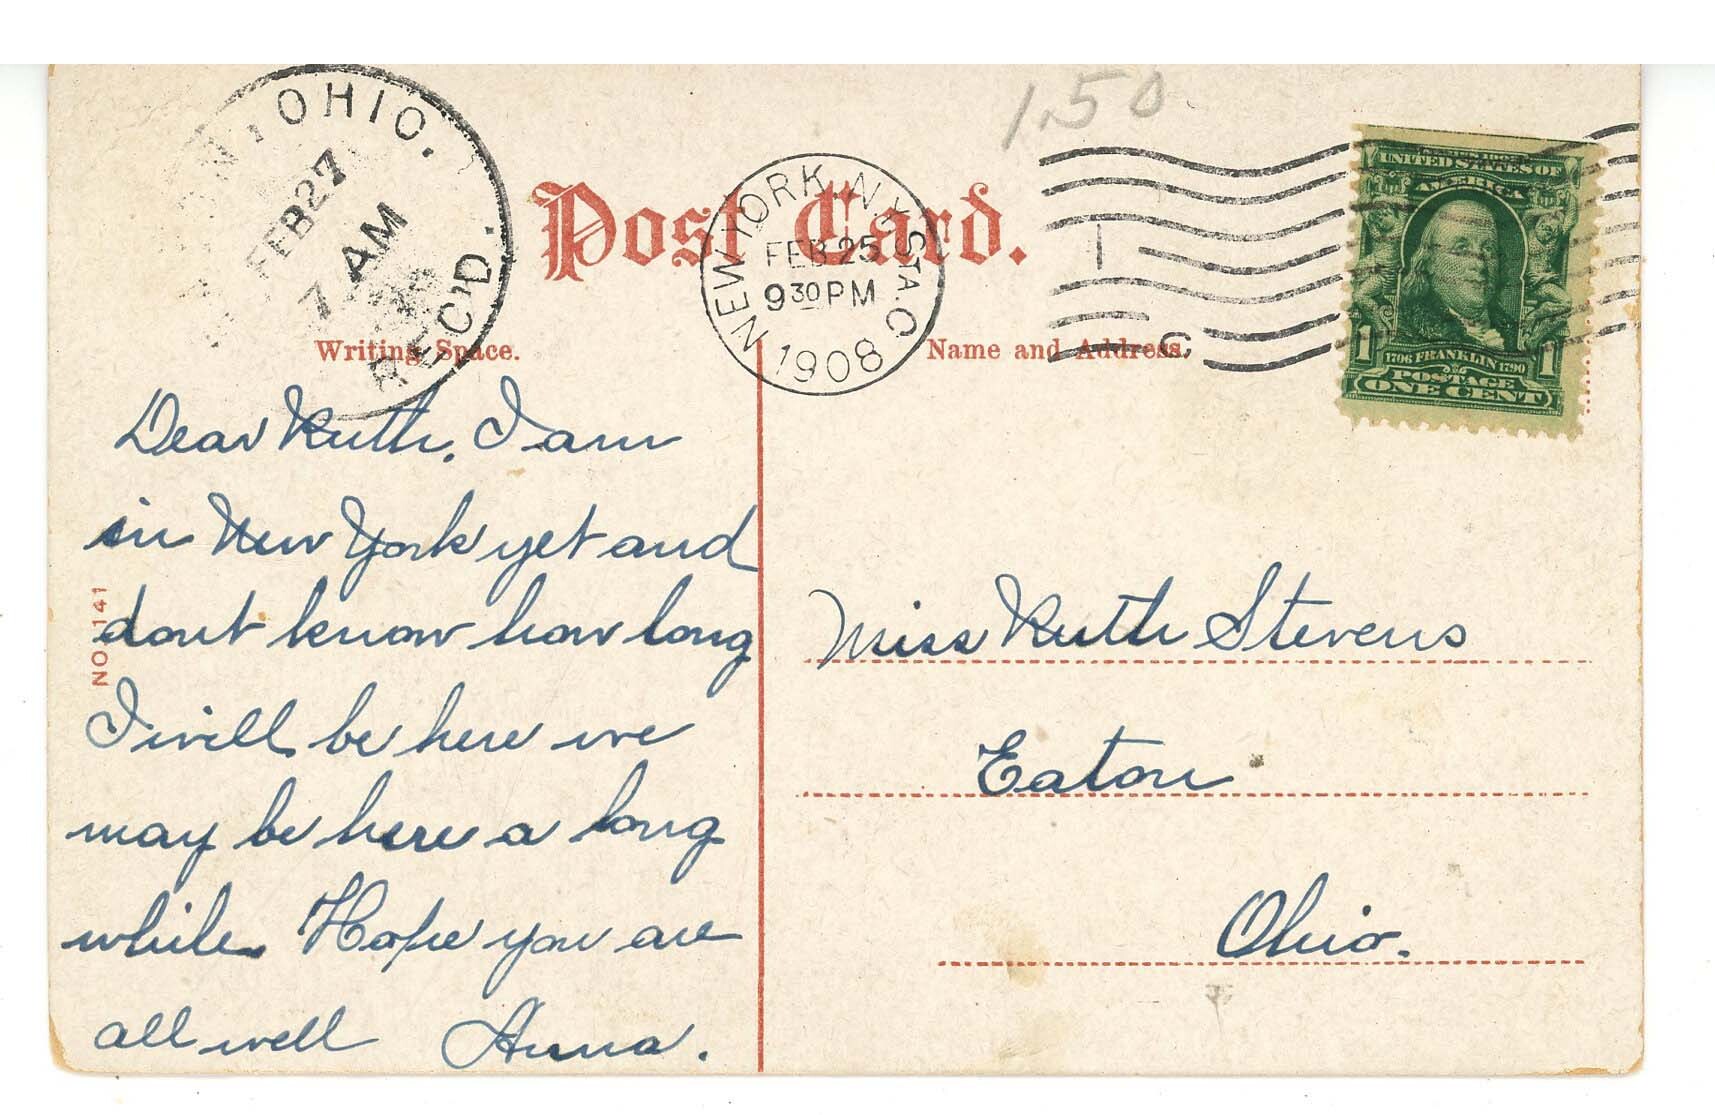 OHIO.
FEB 27
7 AM
REC'D.
1.50
Post Card.
NEW YORK, N.Y. STA. O
FEB 25
9 30 PM
1908
C
UNITED STATES OF
AMERICA
1 1706 FRANKLIN 1790 1
POSTAGE
ONE CENT
Writing Space.
Name and Address.
NO. 141
Dear Ruth. I am
in New York yet and
dont know how long
I will be here we
may be here a long
while. Hope you are
all well Anna.
Miss Ruth Stevens
Eaton
Ohio.